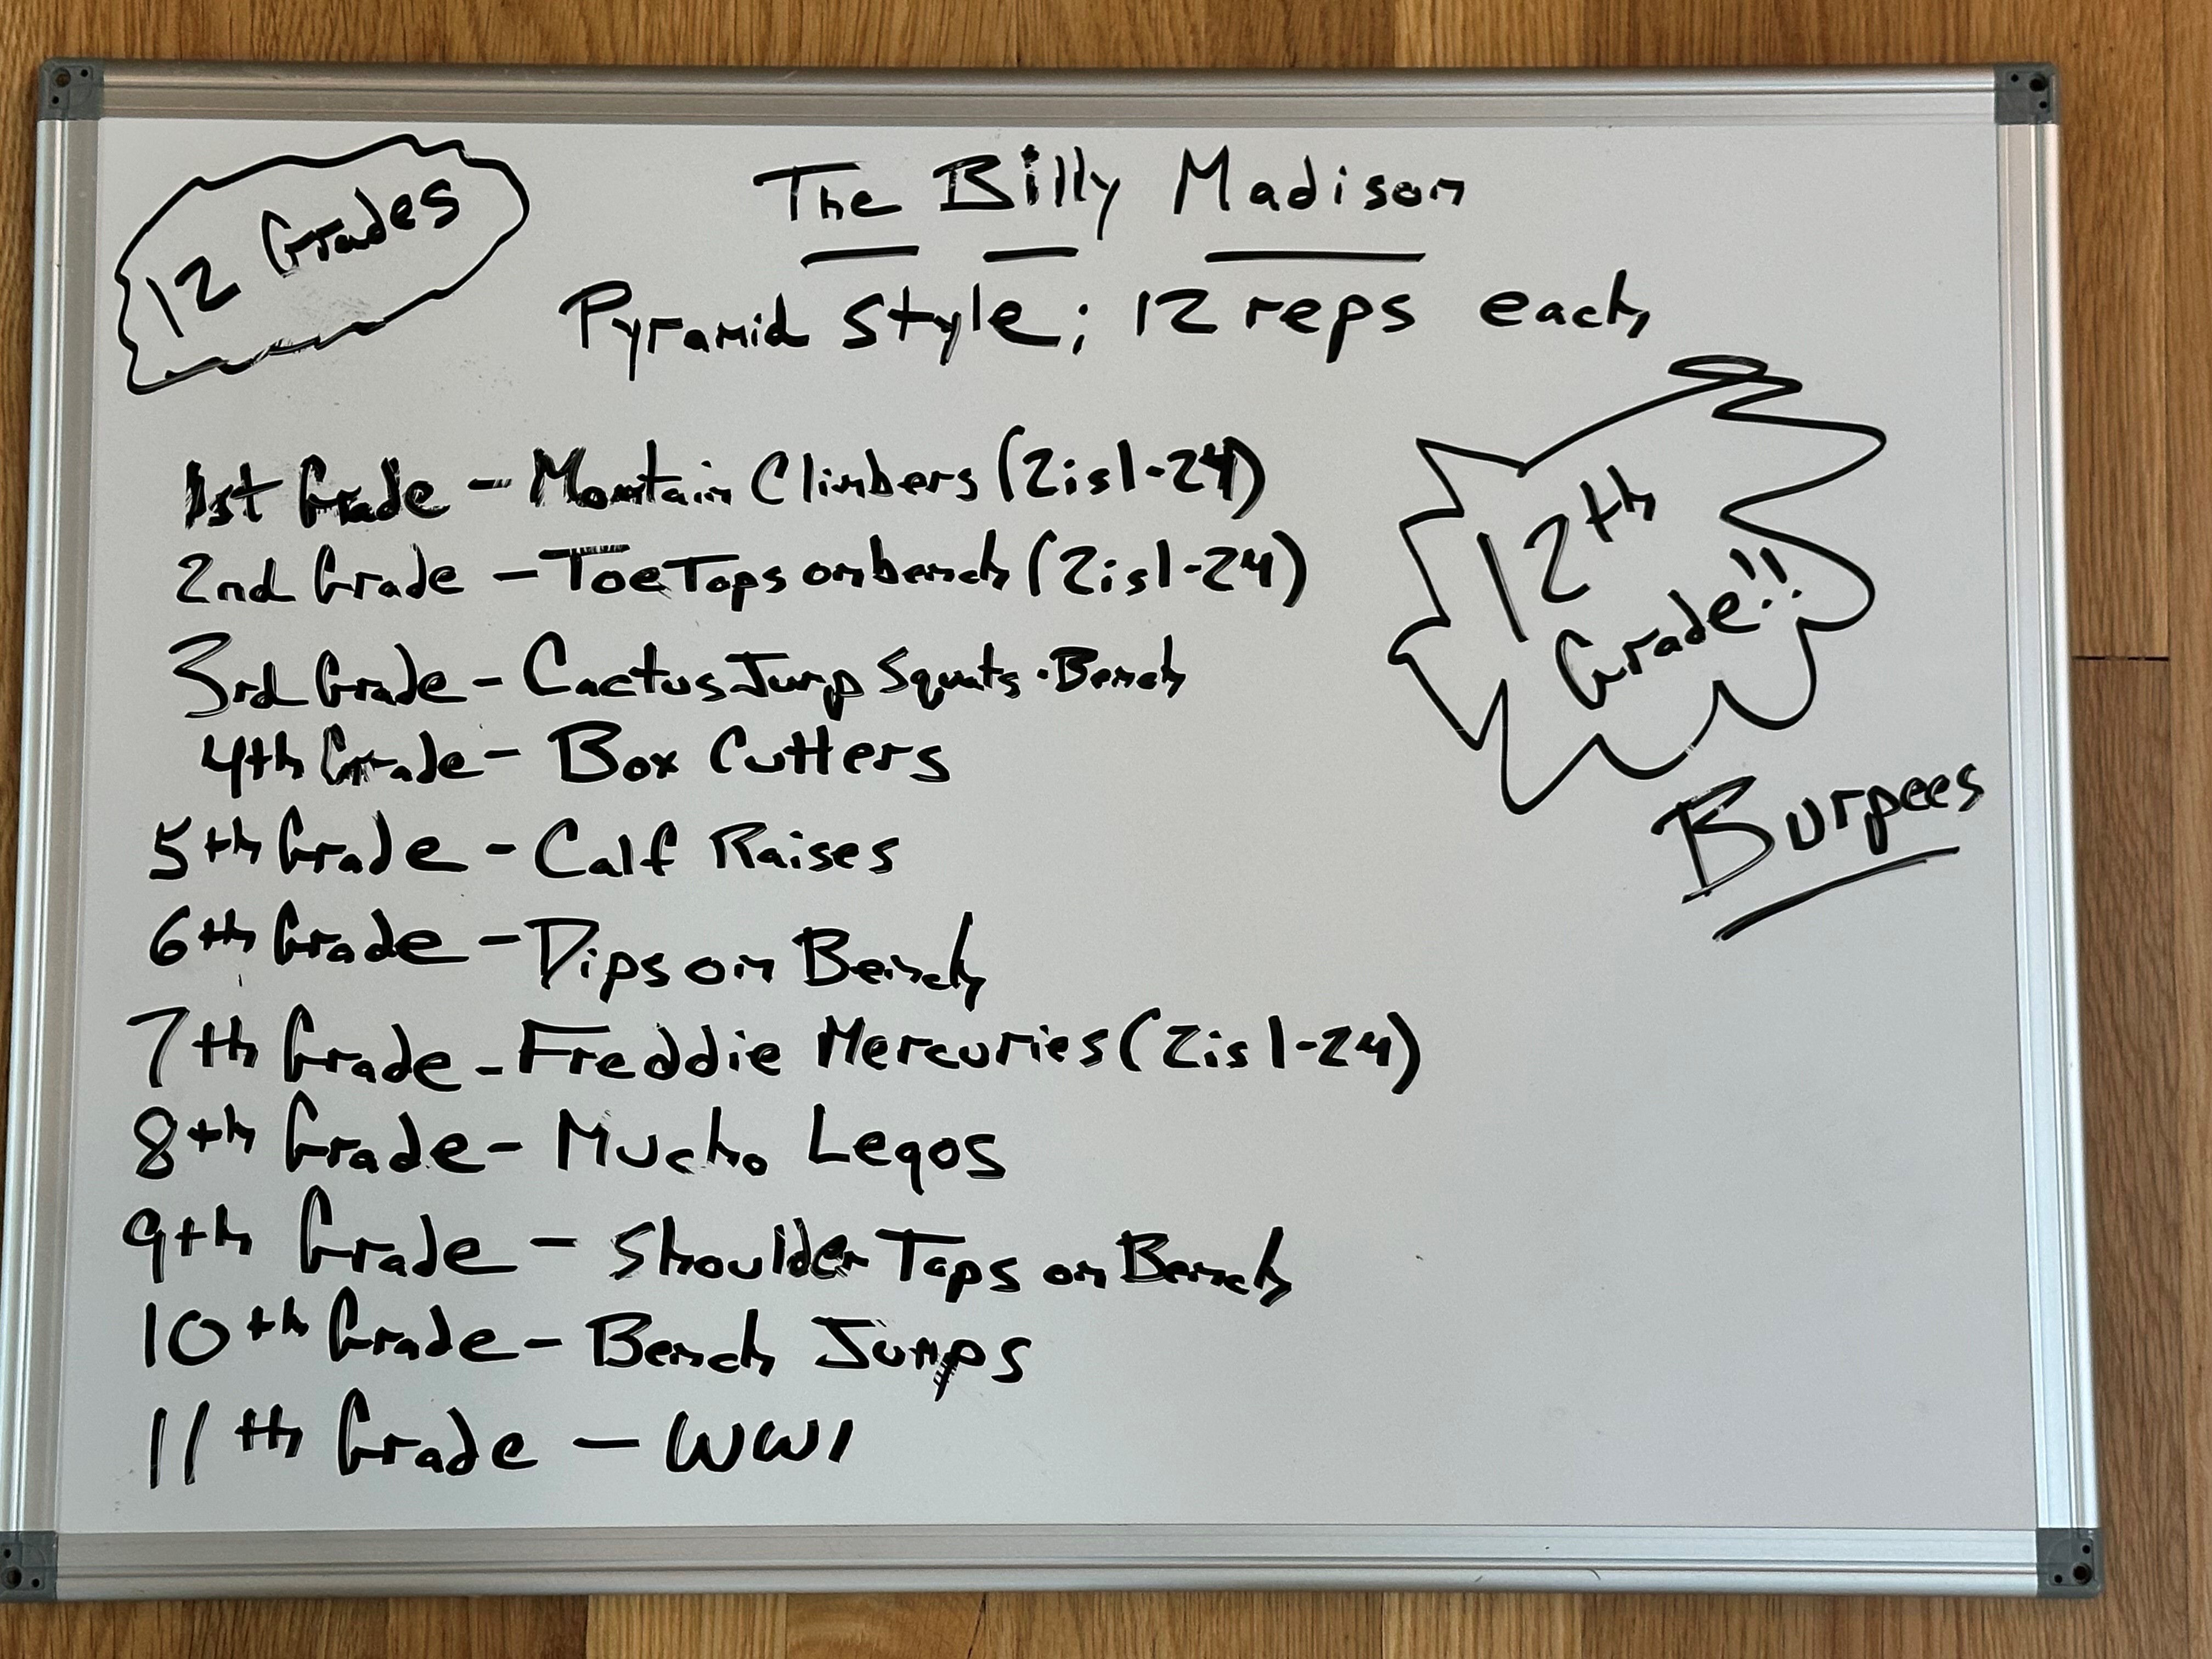 12 Grades
The Billy Madison
Pyramid Style; 12 reps each
1st Grade - Mountain Climbers (2is1-24)
2nd Grade - Toe Taps on bench (2is1-24)
3rd Grade - Cactus Jump Squats · Bench
4th Grade - Box Cutters
5th Grade - Calf Raises
6th Grade - Dips on Bench
7th Grade - Freddie Mercuries (2is1-24)
8th Grade - Mucho Legos
9th Grade - Shoulder Taps on Bench
10th Grade - Bench Jumps
11th Grade - WWI
12th
Grade!!
Burpees